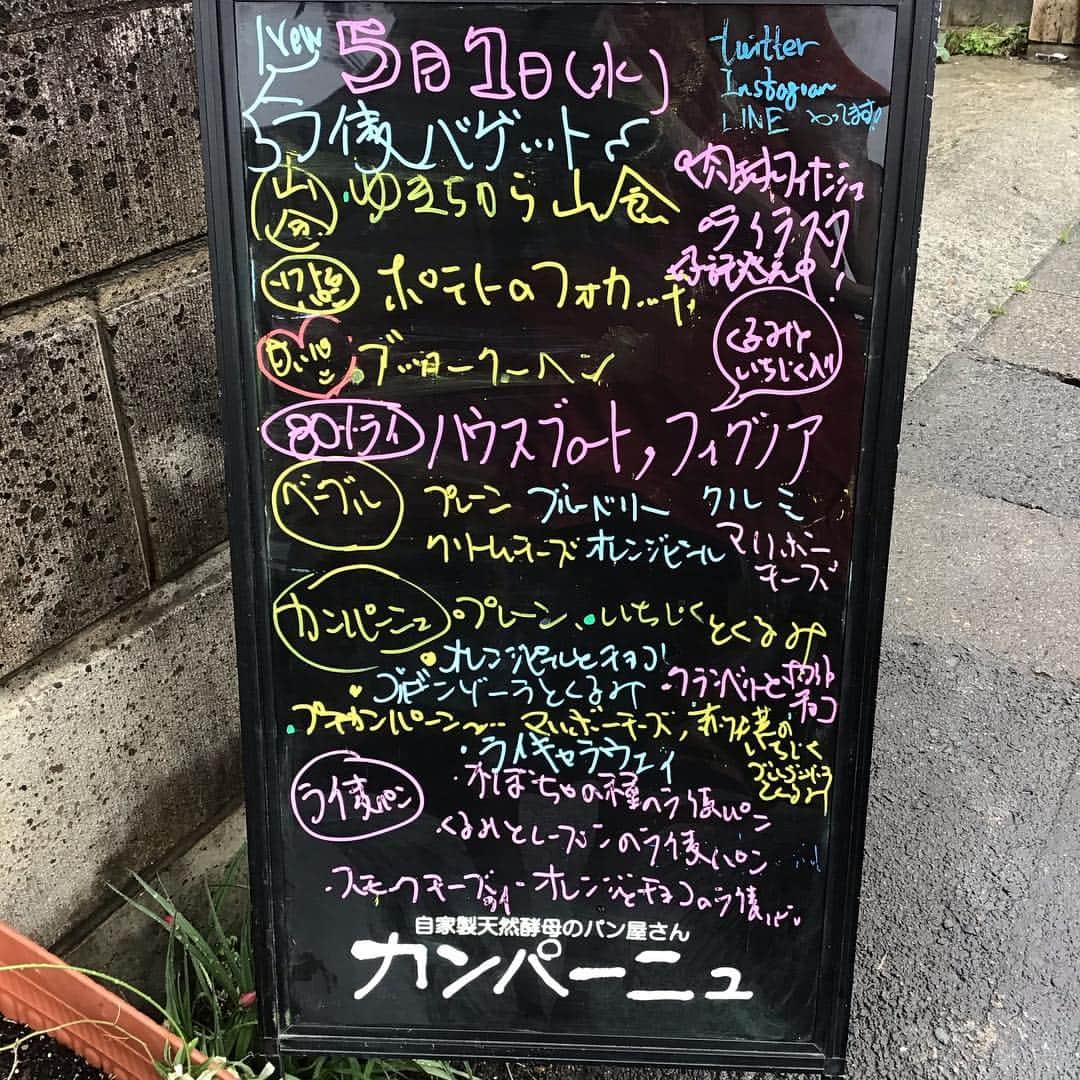 New 5月1日(水)
twitter
Instagram
LINE やってます!
バゲット
山食 ゆきちから山食
ライラスク
ポテトのフォカッチャ
くるみと
いちじく入り
白いパン ブッタークーヘン
ライ ハウスブロート,フィグノア
ベーグル プレーン ブルーベリー クルミ
クリームチーズ オレンジピール マリボーチーズ
カンパーニュ ・プレーン、・いちじくとくるみ
オレンジピールとチョコ!
ゴルゴンゾーラとくるみ ・クランベリーと チョコ
プチカンパーニュ… マリボーチーズ, いちじく
ゴルゴンゾーラとくるみ
・ライキャラウェイ
・かぼちゃの種のライ麦パン
ライ麦パン
・くるみとレーズンのライ麦パン
・スモークチーズ ・オレンジとチョコのライ麦パン
自家製天然酵母のパン屋さん
カンパーニュ